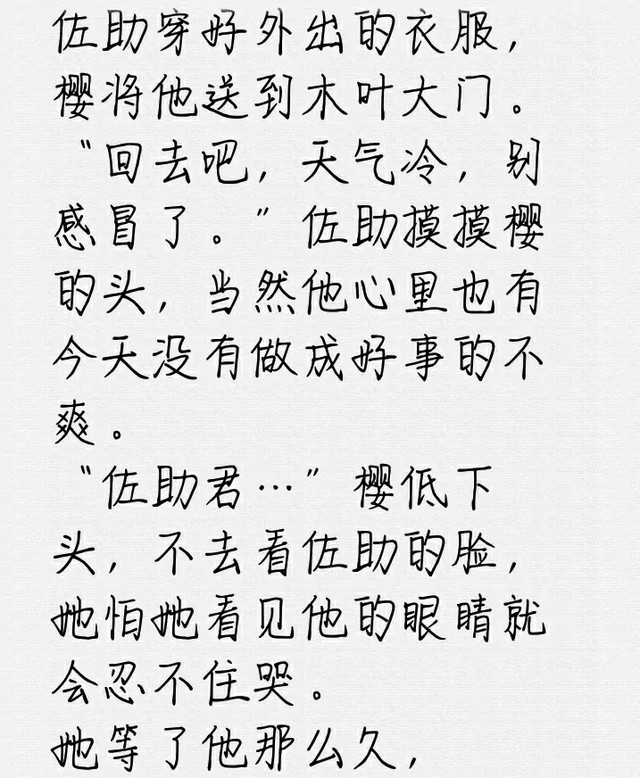 佐助穿好外出的衣服，
樱将他送到木叶大门。
“回去吧，天气冷，别
感冒了。”佐助摸摸樱
的头，当然他心里也有
今天没有做成好事的不
爽。
“佐助君…”樱低下
头，不去看佐助的脸，
她怕她看见他的眼睛就
会忍不住哭。
她等了他那么久，